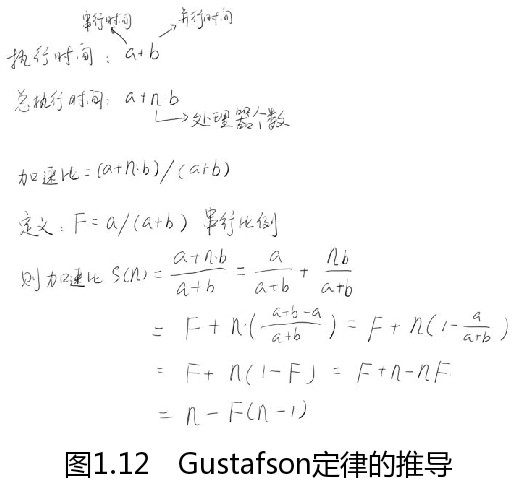 串行时间 并行时间
执行时间: a+b
总执行时间: a+n b
处理器个数
加速比=(a+n·b)/(a+b)
定义: F=a/(a+b) 串行比例
则加速比 S(n)= (a+n·b)/(a+b) = a/(a+b) + nb/(a+b)
= F + n·((a+b-a)/(a+b)) = F + n(1-a/(a+b))
= F+ n(1-F) = F+n-nF
= n-F(n-1)
图1.12 Gustafson定律的推导